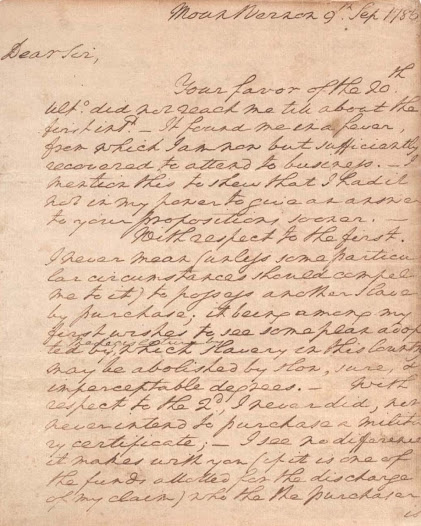 Mount Vernon 9th Sep 1786
Dear Sir,
Your favor of the 20th
ulto. did not reach me till about the
first inst. – It found me in a fever,
from which I am now but sufficiently
recovered to attend to business. – I
mention this to shew that I had it
not in my power to give an answer
to your propositions sooner. –
With respect to the first.
I never mean (unless some particu
lar circumstances should compel
me to it) to possess another slave
by purchase; it being among my
first wishes to see some plan adop
ted by
the Legislature by
which slavery in this Country
may be abolished by slow, sure, &
imperceptable degrees. – With
respect to the 2d, I never did, nor
never intend to purchase a milita
ry certificate; – I see no difference
it makes with you (if it is one of
the funds allotted for the discharge
of my claim) who the the purchaser
is